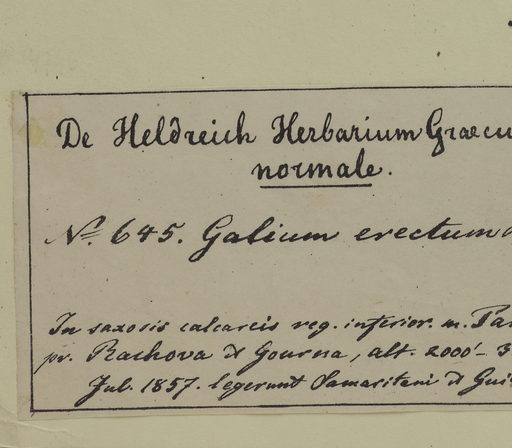 De Heldreich Herbarium Graecu
normale.
No. 645. Galium erectum
In saxosis calcareis reg. inferior. m. Par
pr. Rachova et Gourna, alt. 2000'-3
Jul. 1857. legerunt Samaritani et Gui